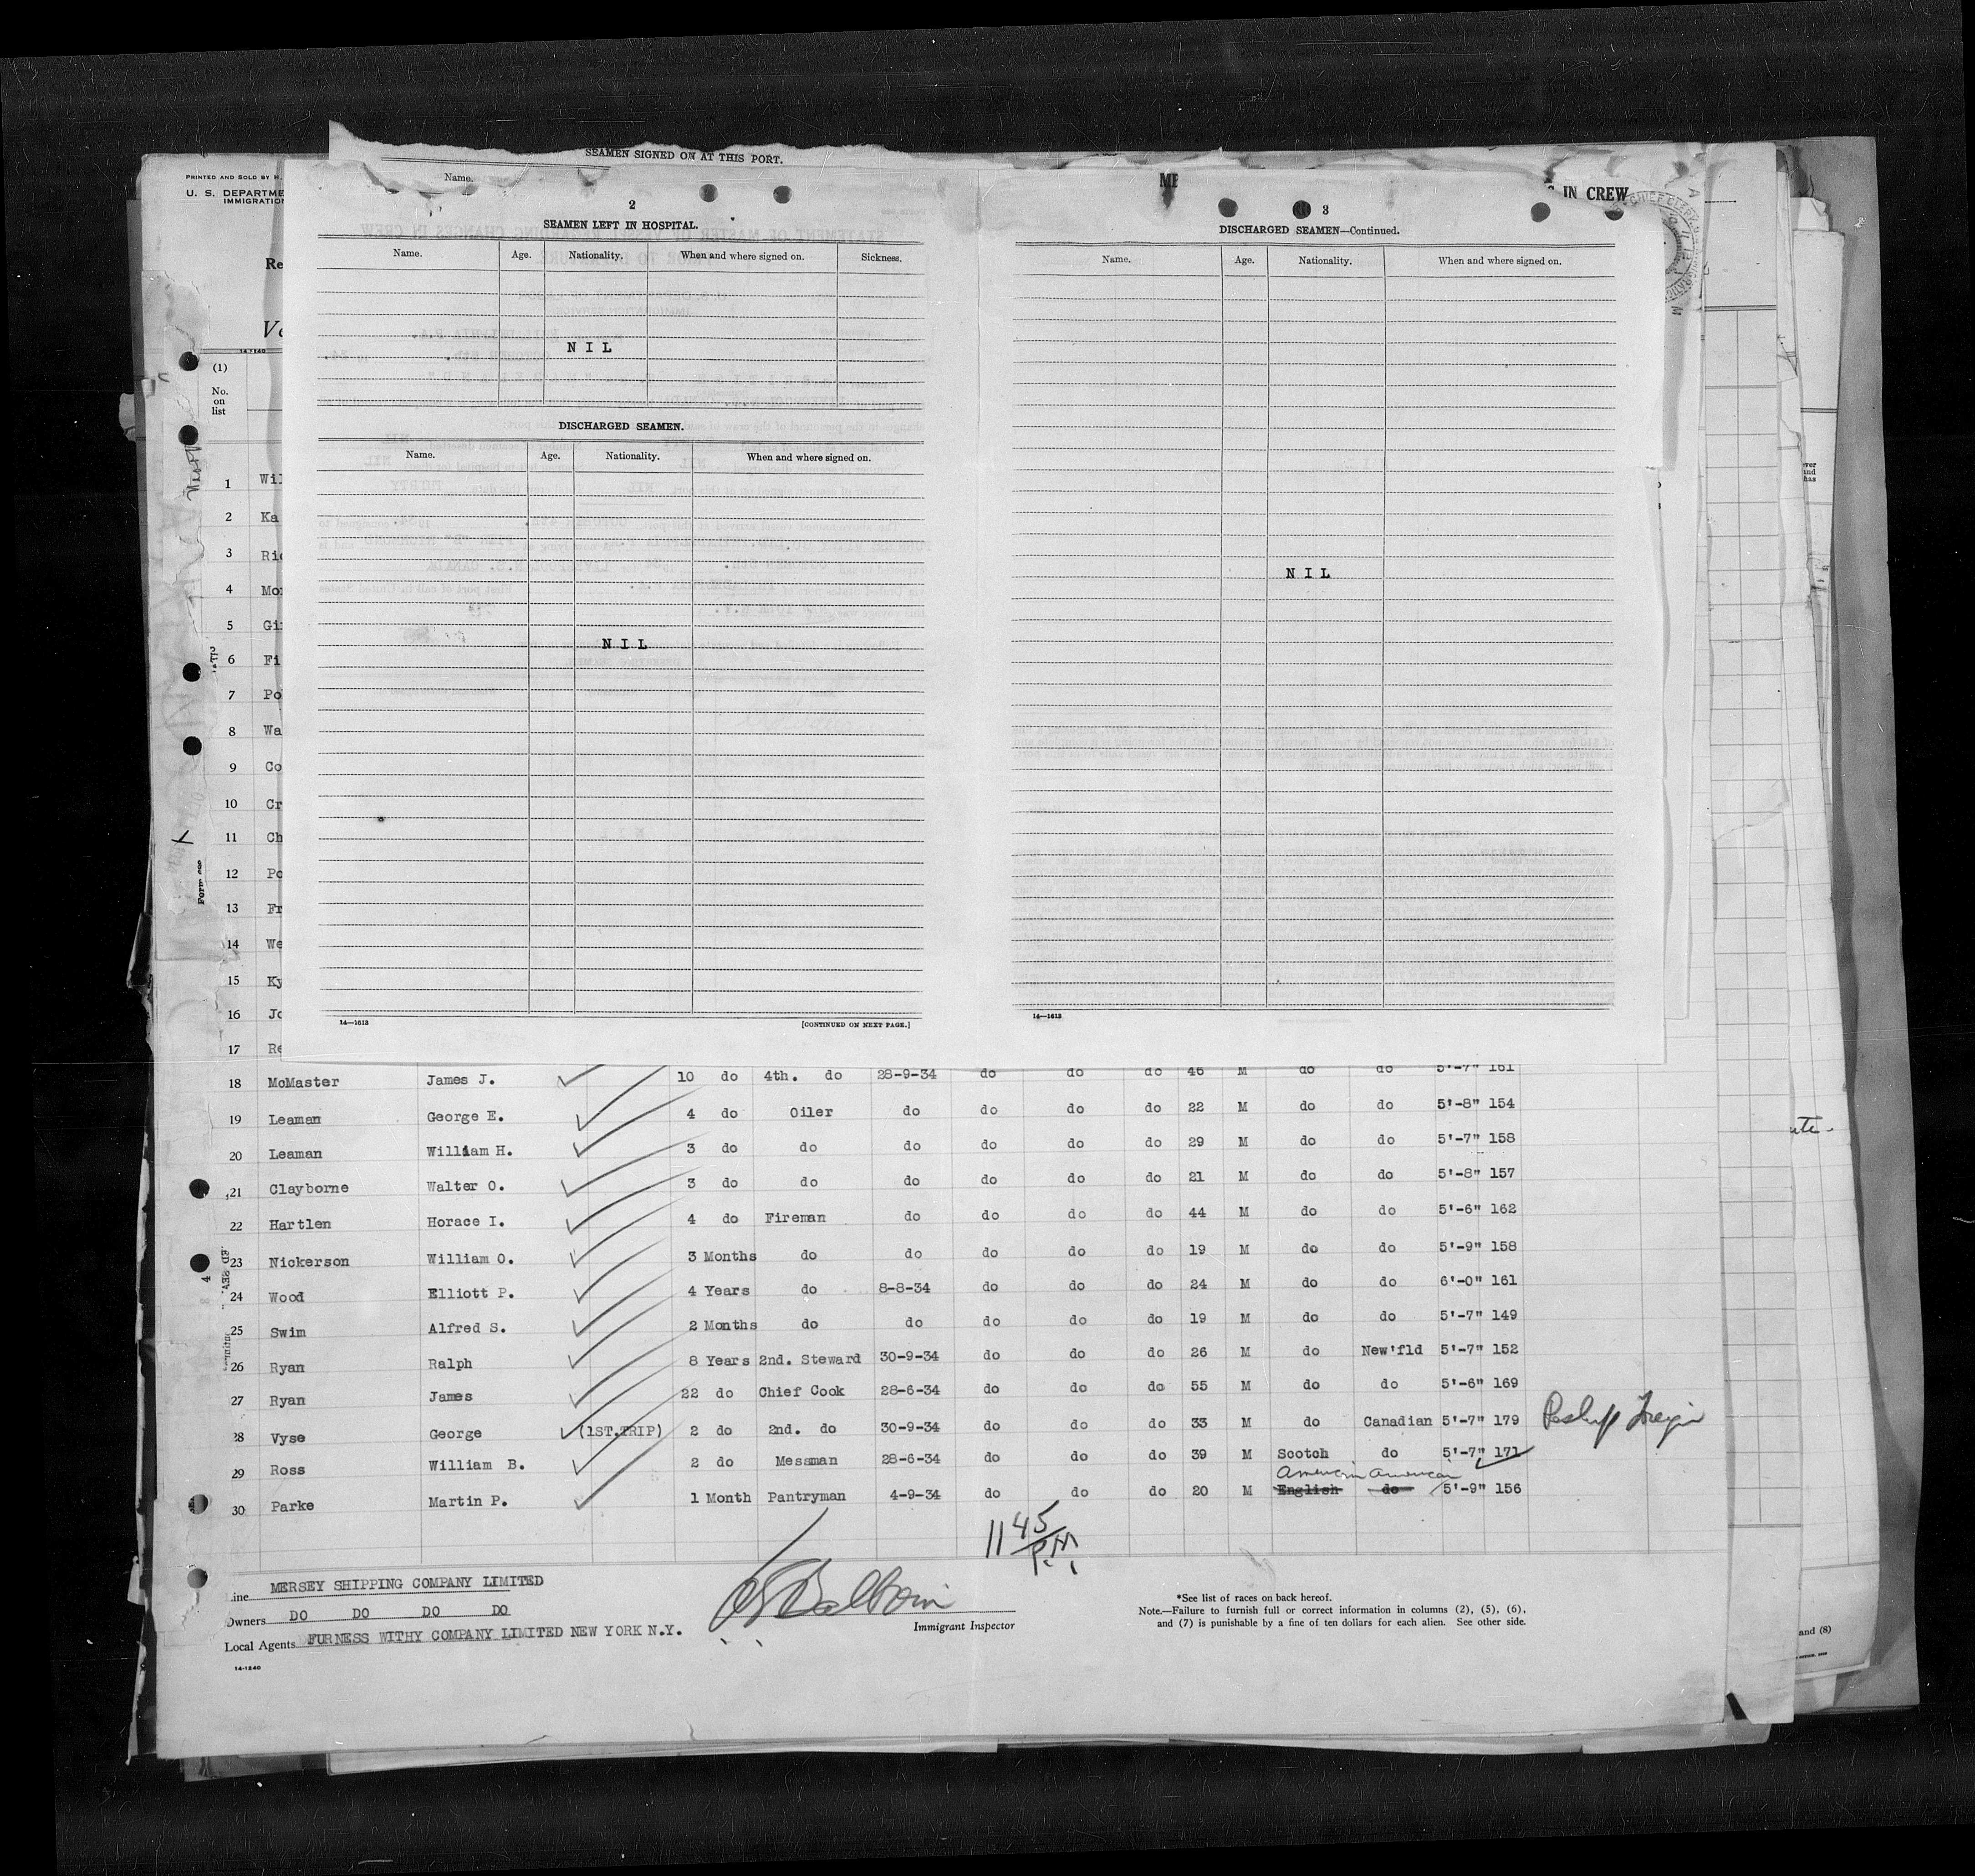 SEAMEN SIGNED ON AT THIS PORT.
Name.
2
SEAMEN LEFT IN HOSPITAL.
Name. Age. Nationality. When and where signed on. Sickness.
NIL
DISCHARGED SEAMEN.
Name. Age. Nationality. When and where signed on.
NIL
14—1613 [CONTINUED ON NEXT PAGE.]
IN CREW
3
DISCHARGED SEAMEN—Continued.
Name. Age. Nationality. When and where signed on.
NIL
14—1613
PRINTED AND SOLD BY H.
U. S. DEPARTME
IMMIGRATION
Re
Ve
14-1240
(1)
No.
on
list
1 Wil
2 Ka
3 Ric
4 Mor
5 Gi
6 Fi
7 Po
8 Wa
9 Co
10 Cr
11 Ch
12 Po
13 Fr
14 We
15 Ky
16 Jo
17 Re
18 McMaster James J. 10 do 4th. do 28-9-34 do do do 46 M do do 5'-7" 161
19 Leaman George E. 4 do Oiler do do do do 22 M do do 5'-8" 154
20 Leaman William H. 3 do do do do do do 29 M do do 5'-7" 158
21 Clayborne Walter O. 3 do do do do do do 21 M do do 5'-8" 157
22 Hartlen Horace I. 4 do Fireman do do do do 44 M do do 5'-6" 162
23 Nickerson William O. 3 Months do do do do do 19 M do do 5'-9" 158
24 Wood Elliott P. 4 Years do 8-8-34 do do do 24 M do do 6'-0" 161
25 Swim Alfred S. 2 Months do do do do do 19 M do do 5'-7" 149
26 Ryan Ralph 8 Years 2nd. Steward 30-9-34 do do do 26 M do New'fld 5'-7" 152
27 Ryan James 22 do Chief Cook 28-6-34 do do do 55 M do do 5'-6" 169
28 Vyse George (1ST.TRIP) 2 do 2nd. do 30-9-34 do do do 33 M do Canadian 5'-7" 179
29 Ross William B. 2 do Messman 28-6-34 do do do 39 M Scotch do 5'-7" 171
American American
30 Parke Martin P. 1 Month Pantryman 4-9-34 do do do 20 M English do 5'-9" 156
11 45 P.M.
Line MERSEY SHIPPING COMPANY LIMITED
Owners DO DO DO DO
Local Agents FURNESS WITHY COMPANY LIMITED NEW YORK N.Y.
14-1240
Immigrant Inspector
*See list of races on back hereof.
Note.—Failure to furnish full or correct information in columns (2), (5), (6),
and (7) is punishable by a fine of ten dollars for each alien. See other side.
and (8)